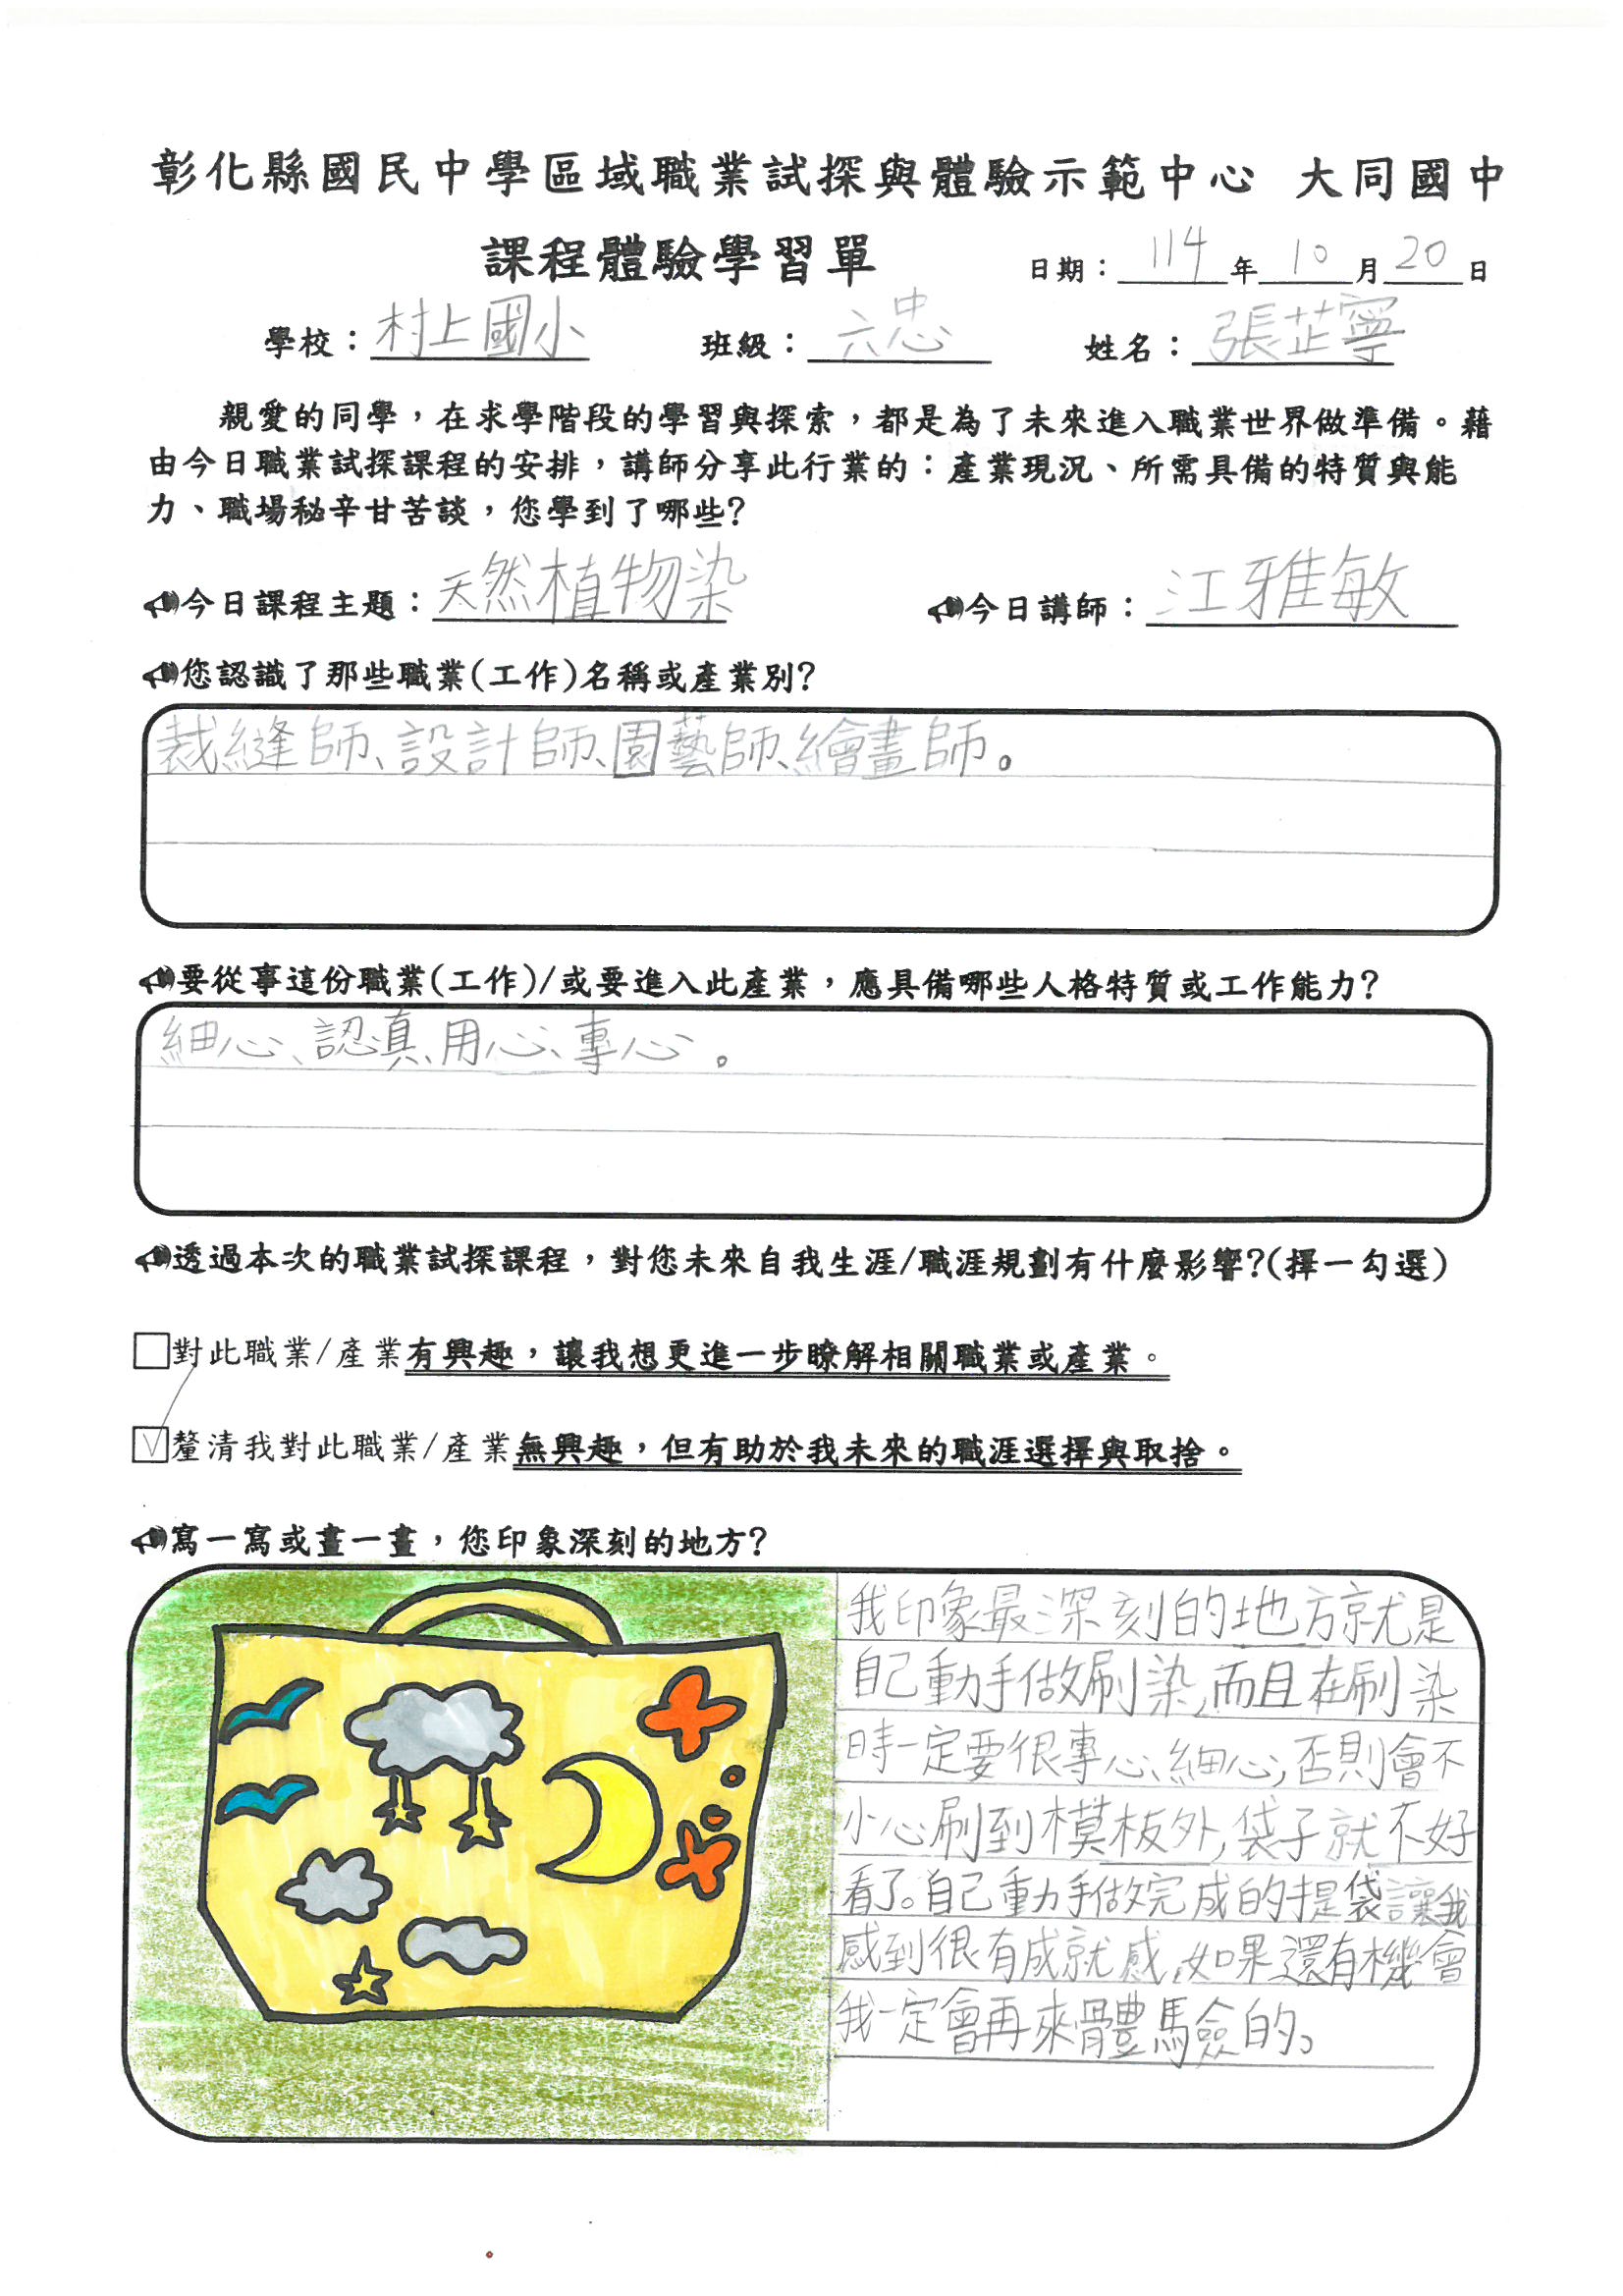 彰化縣國民中學區域職業試探與體驗示範中心 大同國中
課程體驗學習單 日期：114年10月20日
學校：村上國小 班級：六忠 姓名：張芷寧
親愛的同學，在求學階段的學習與探索，都是為了未來進入職業世界做準備。藉
由今日職業試探課程的安排，講師分享此行業的：產業現況、所需具備的特質與能
力、職場秘辛甘苦談，您學到了哪些?
今日課程主題：天然植物染 今日講師：江雅敏
您認識了那些職業(工作)名稱或產業別?
裁縫師、設計師、園藝師、繪畫師。
要從事這份職業(工作)/或要進入此產業，應具備哪些人格特質或工作能力?
細心、認真、用心、專心。
透過本次的職業試探課程，對您未來自我生涯/職涯規劃有什麼影響?(擇一勾選)
□對此職業/產業有興趣，讓我想更進一步瞭解相關職業或產業。
☑釐清我對此職業/產業無興趣，但有助於我未來的職涯選擇與取捨。
寫一寫或畫一畫，您印象深刻的地方?
我印象最深刻的地方就是
自己動手做刷染，而且在刷染
時一定要很專心、細心，否則會不
小心刷到模板外，袋子就不好
看了。自己動手做完成的提袋讓我
感到很有成就感，如果還有機會
我一定會再來體驗的。